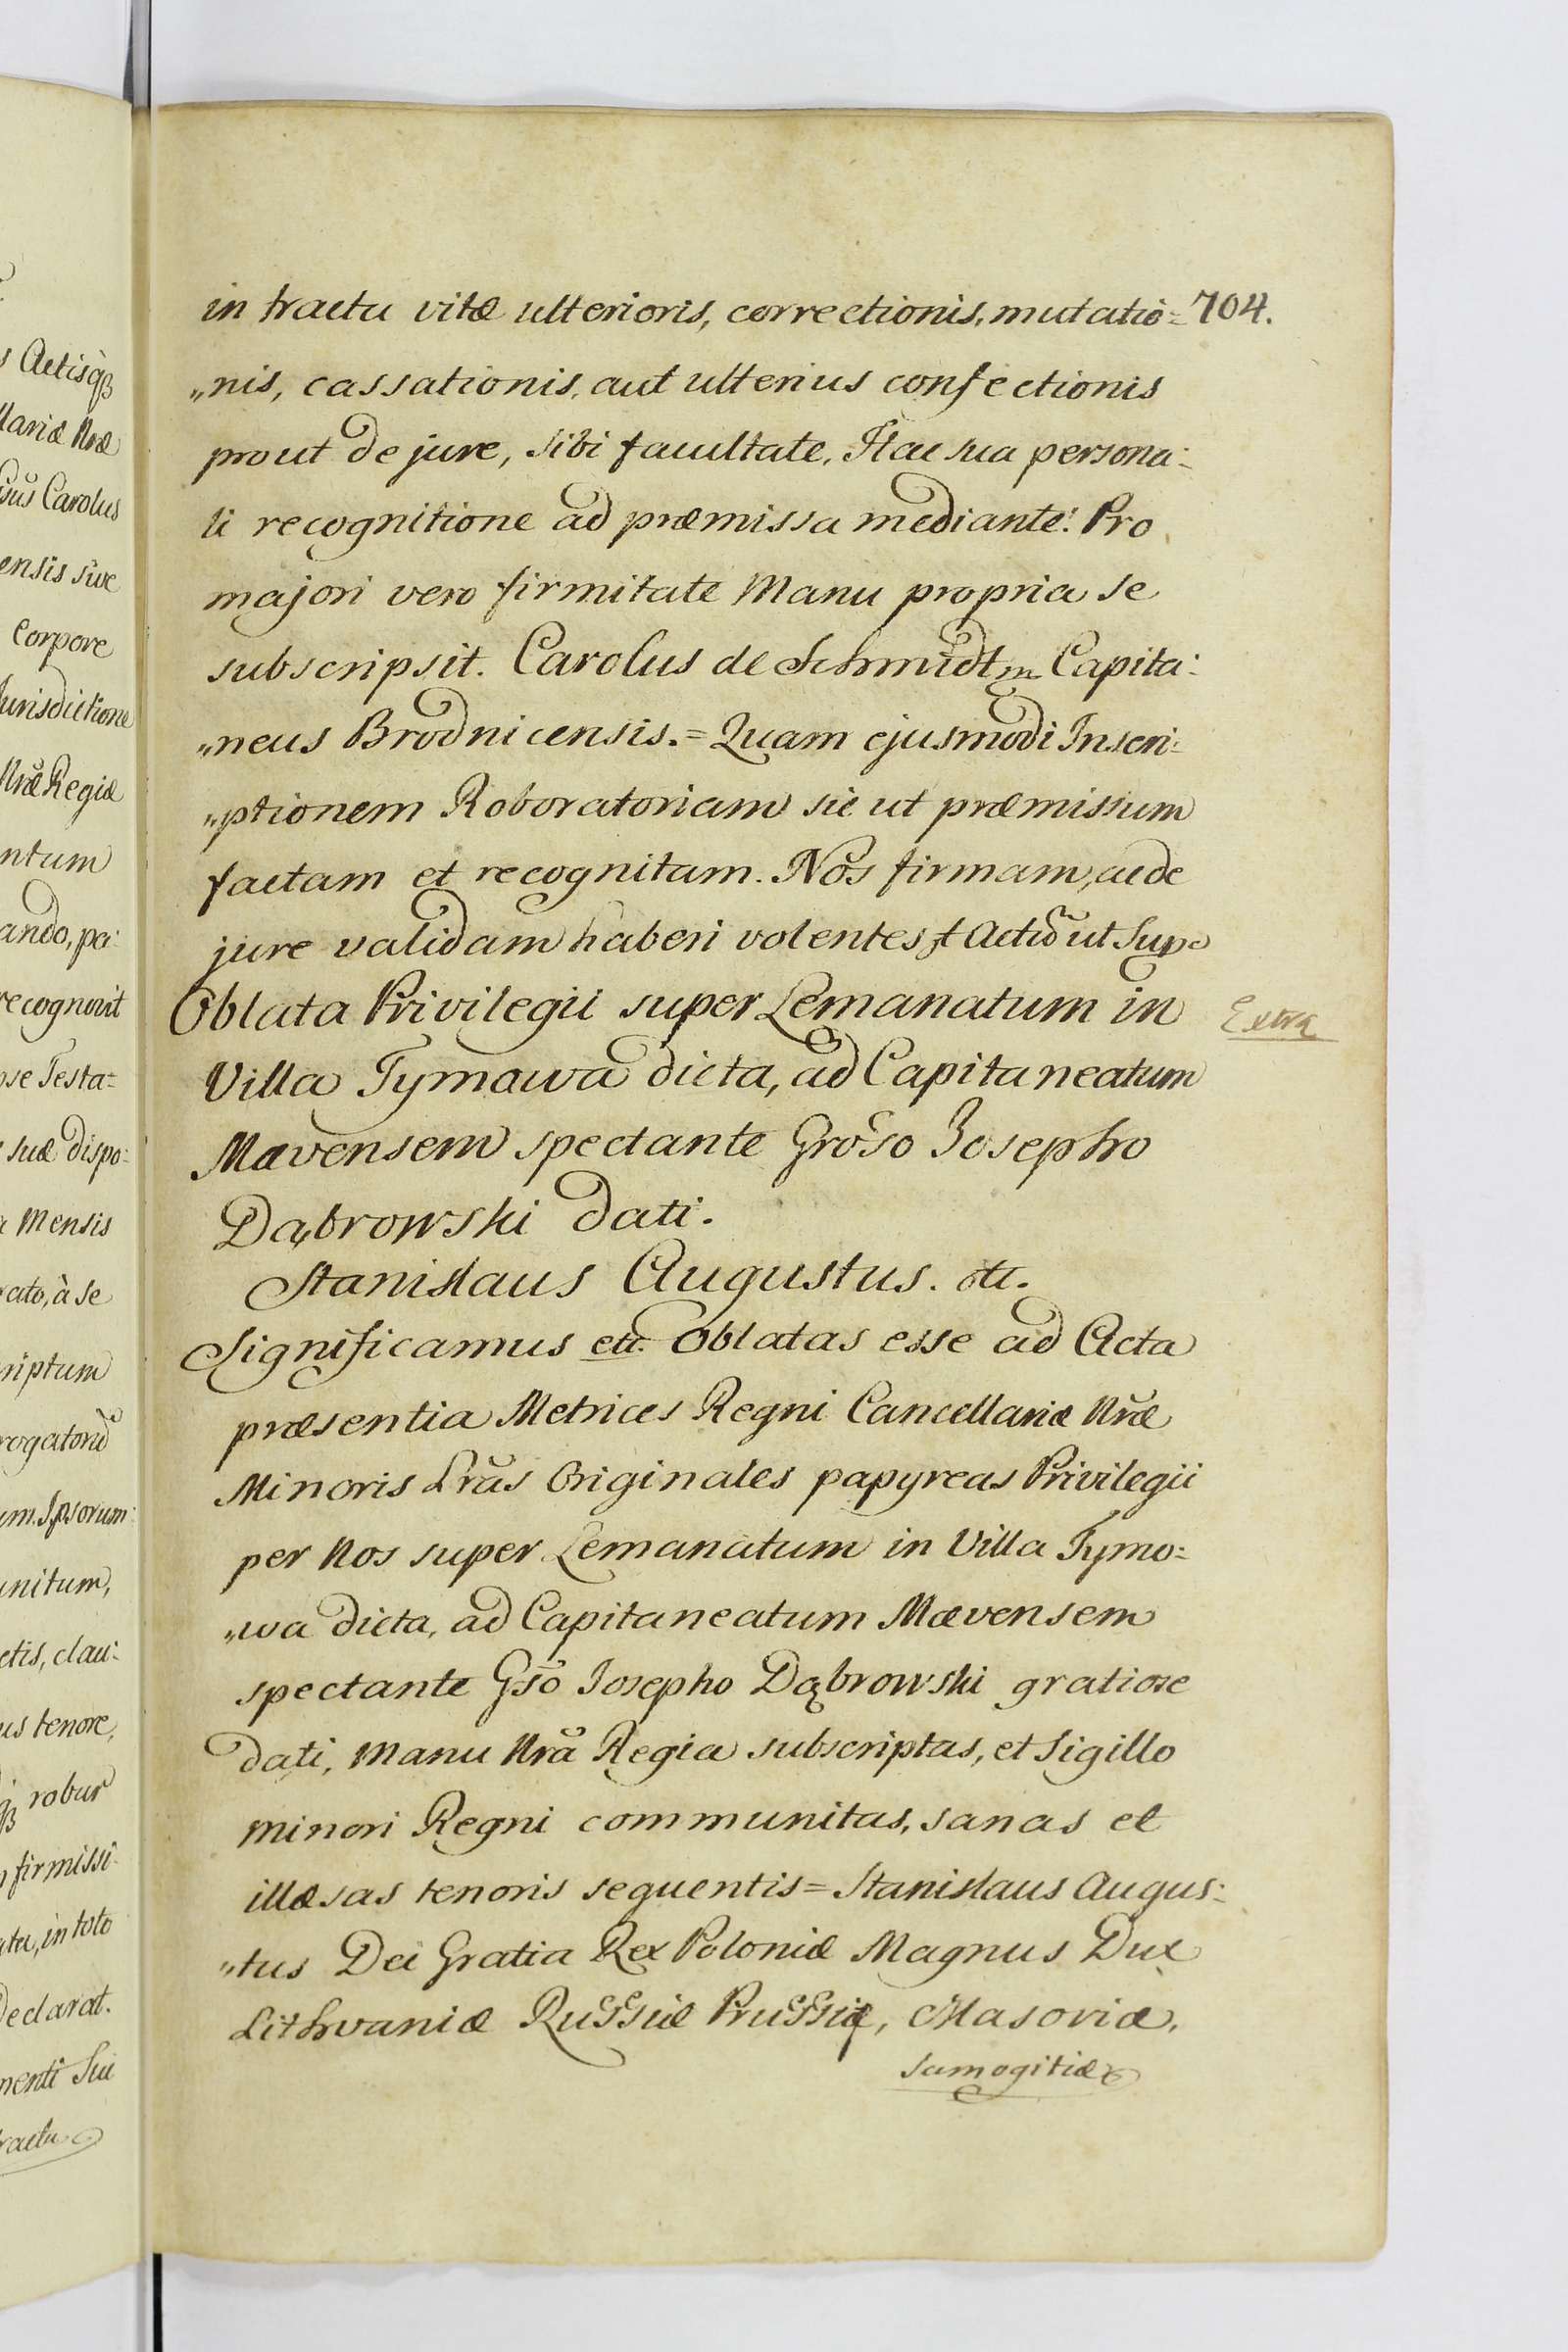 in tractu vitæ ulterioris, correctionis, mutatio= 704.
„nis, cassationis, aut ulterius confectionis
prout de jure, sibi facultate. Hac sua persona:
li recognitione ad præmissa mediante: Pro
majori vero firmitate Manu propria se
subscripsit. Carolus de Schmidt Capita:
„neus Brodnicensis.= Quam ejusmodi Inscri:
„ptionem Roboratoriam sic ut præmissum
factam et recognitam. Nos firmam, ac de
jure validam haberi volentes ut Supa
Oblata Privilegii super Lemanatum in
Extra
Villa Tymawa dicta, ad Capitaneatum
Mævensem spectante Groso Josepho
Dąbrowski dati.
Stanislaus Augustus. etc.
Significamus etc. Oblatas esse ad Acta
præsentia Metrices Regni Cancellariæ Nræ
Minoris Lras Originales papyreas Privilegii
per Nos super Lemanatum in Villa Tymo=
„wa dicta, ad Capitaneatum Mævensem
spectante Gso Josepho Dąbrowski gratiose
dati, Manu Nra Regia subscriptas, et Sigillo
minori Regni communitas, sanas et
illæsas tenoris sequentis= Stanislaus Augus:
„tus Dei Gratia Rex Poloniæ Magnus Dux
Lithvaniæ Russiæ Prussiæ, Masoviæ,
Samogitiæ
s Actisq
llariæ Nræ
Carolus
ensis sive
Corpore
Jurisdictione
Nræ Regiæ
ntum
ando, pa:
recognovit
se Testa=
suæ dispo:
a Mensis
rato, à se
riptum
rogatoru
um. Ipsorum
unitum,
ctis, clau:
us tenore,
robur
firmissi
in toto
Declarat.
menti Sui
ractu